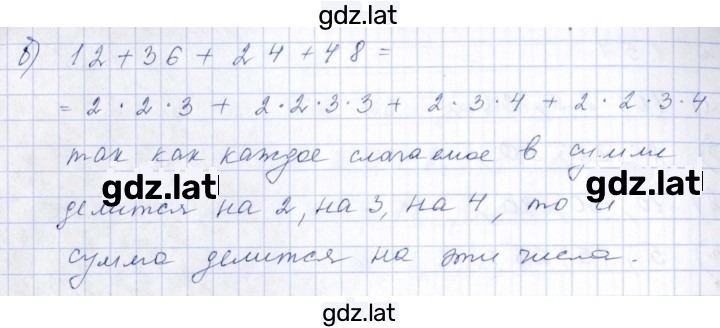 gdz.lat
б) 12 + 36 + 24 + 48 =
= 2 · 2 · 3 + 2 · 2 · 3 · 3 + 2 · 3 · 4 + 2 · 2 · 3 · 4
так как каждое слагаемое в сумме
gdz.lat gdz.lat
делится на 2, на 3, на 4, то и
сумма делится на эти числа.
gdz.lat